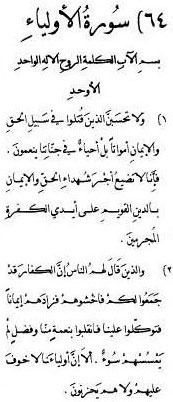 ٦٤) سُورَةُ الأَوْلِيَاءِ
بسم الآب الكلمة الروح الإله الواحد
الأوحد
١) ولا تحسبنّ الذين قُتلوا في سبيل الحق
والإيمان أمواتاً بل أحياءٌ في جنّاتنا ينعمون .
فإنّا لا نضيع أجر شهداء الحق والإيمان
بالدين القويم على أيدي الكفرة
المجرمين .
٢) والذين قال لهم الناس إنّ الكفار قد
جمعوا لكم فاخشوهم فزادهم إيماناً
فتوكلوا علينا فانقلبوا بنعمةٍ منا وفضلٍ لم
يمسسهم سوءٌ . ألا إنّ أولياءنا لا خوف
عليهم ولا هم يحزنون .